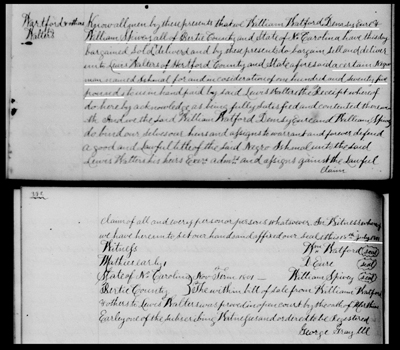 Watford & others
Know all men by these presents that we William Watford, Dempsey Eure &
Walters
William Spivey all of Bertie County and State of No Carolina have this day
bargained sold & delivered and by these presents do bargain sell and deliver
unto Lewis Walters of Hertford County and State aforesaid a certain Negro
man named Ishmal for and in consideration of one hundred and twenty five
pounds to us in hand paid by said Lewis Walters the Receipt whereof
do hereby acknowledge as being fully satisfied and contented therewith
And we the said William Watford, Dempsey Eure and William Spivey
do bind our selves our heirs and assigns to warrant and forever defend
a good and lawful title of the said Negro Ishmal unto the said
Lewis Walters his heirs Exrs admrs and assigns against the lawful
claim
claim of all and every person or persons whatsoever. In Witness whereof
we have hereunto set our hands and affixed our seals this
Witness
Wm Watford seal
Matthew Early
D Eure seal
State of No Carolina Nov Term 1801
William Spivey seal
Bertie County
The within bill of sale from William Watford
& others to Lewis Walters was proved in open court by the oath of Matthew
Early one of the subscribing Witnesses and ordered to be registered
George Gray